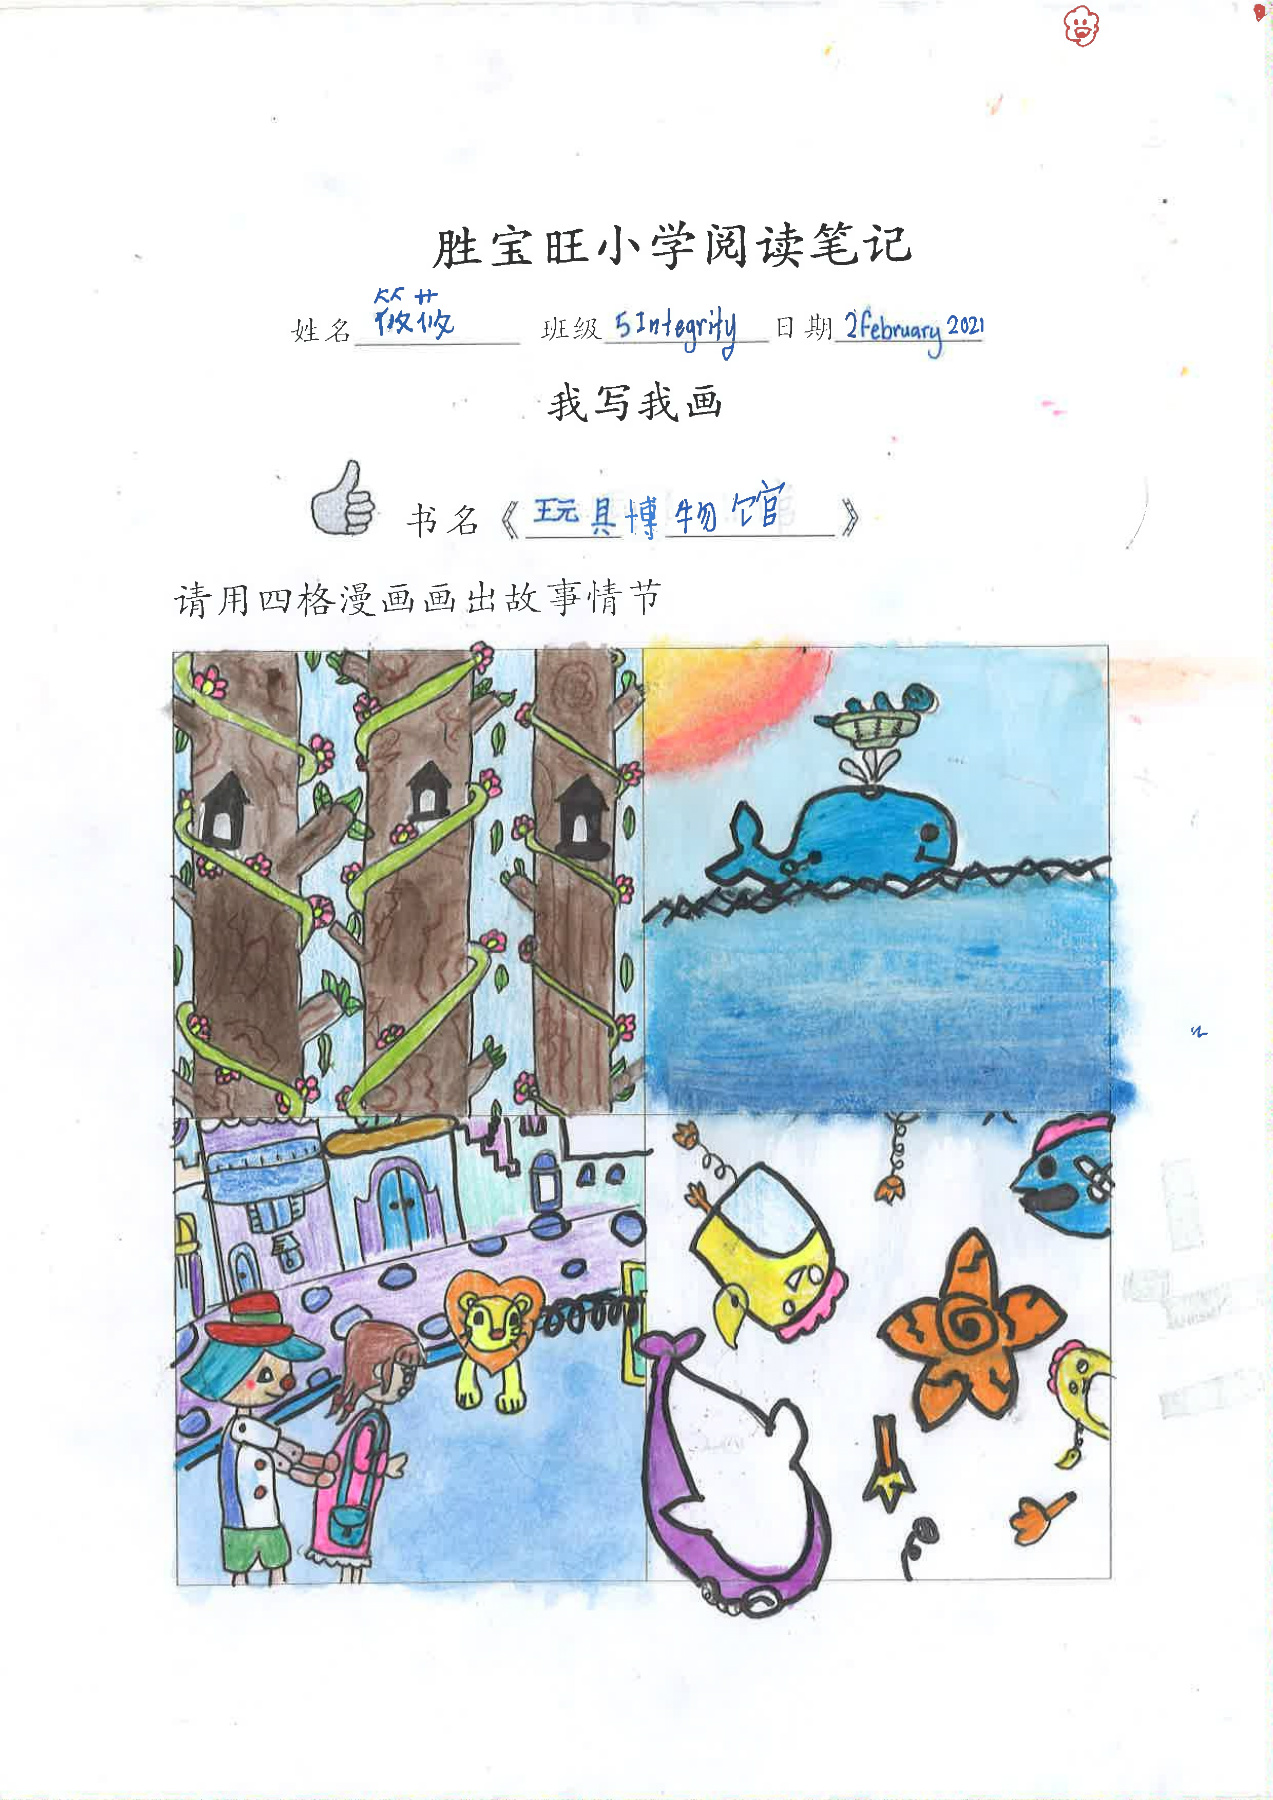 胜宝旺小学阅读笔记
姓名 筱莜 班级 5 Integrity 日期 2 february 2021
我写我画
书名《玩具博物馆》
请用四格漫画画出故事情节